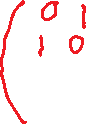 ( 0 1
1 0